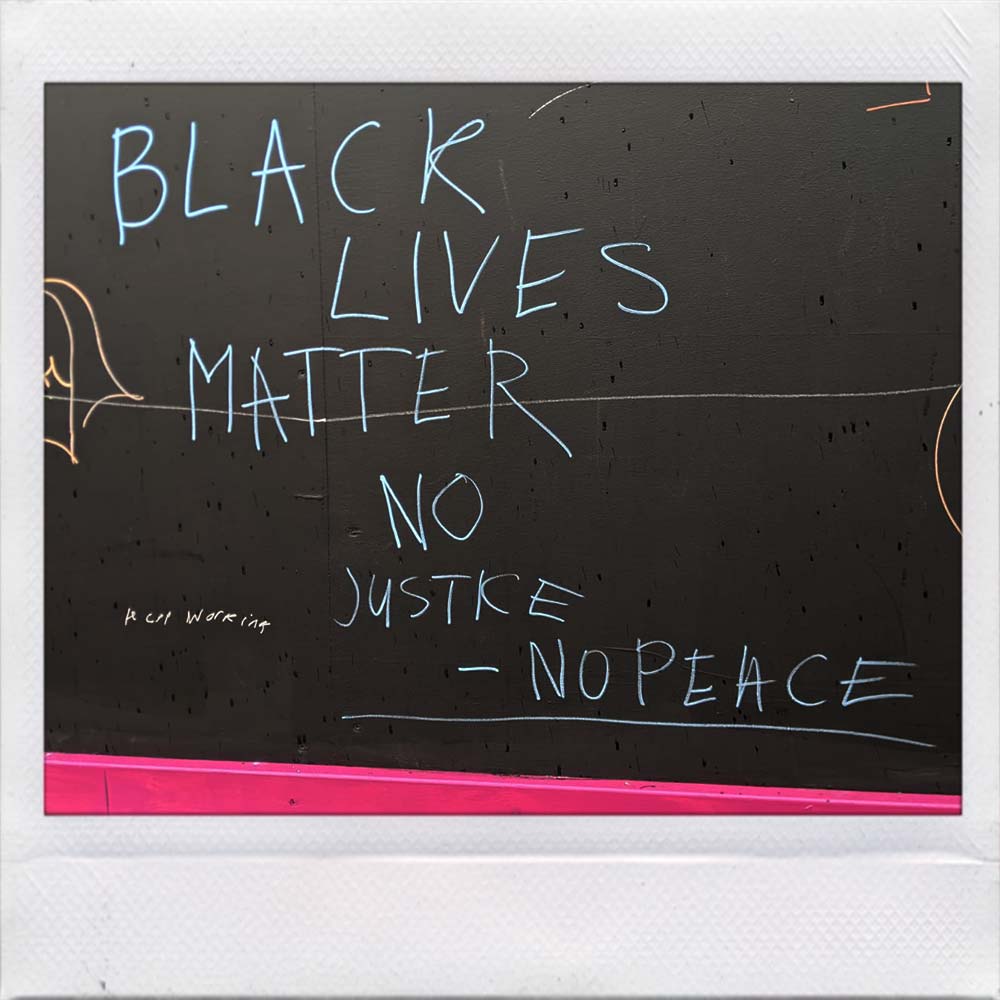 BLACK
LIVES
MATTER
NO
JUSTICE
working
- NO PEACE